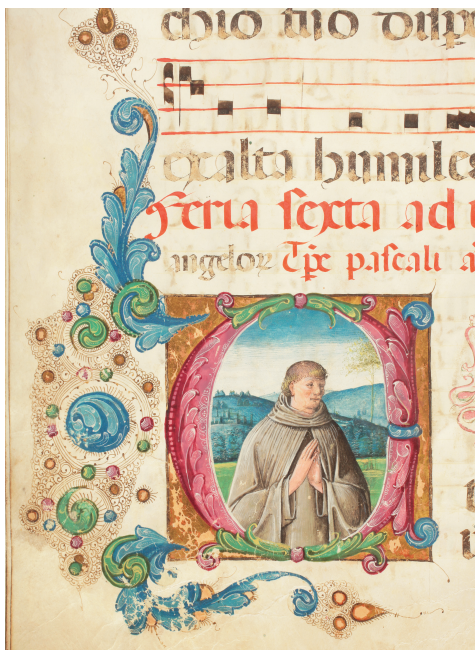 chio tuo disp
exalta humiles
Feria sexta ad
angeloꝝ Tp̄e pascali a